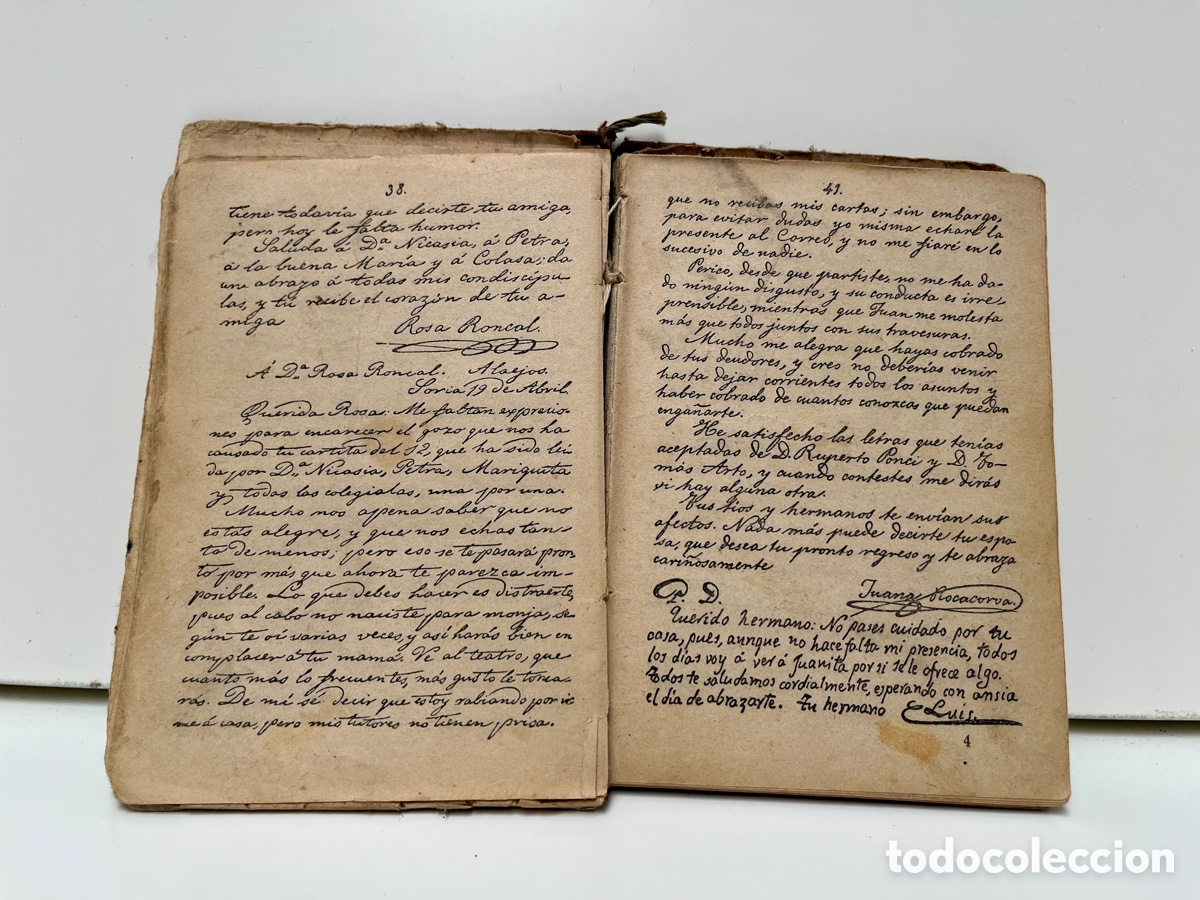 38.
tiene todavía que decirte tu amiga,
pero hoy le falta humor.
Saluda á D.ª Nicasia, á Petra,
á la buena María y á Colasa; da
un abrazo á todas mis condiscípu
las, y tú recibe el corazón de tu a-
miga
Rosa Roncal.
Á D.ª Rosa Roncal. Alaejos.
Soria 19 de Abril.
Querida Rosa: Me faltan expresio-
nes para encarecer el gozo que nos ha
causado tu cartita del 12, que ha sido leí
da por D.ª Nicasia, Petra, Mariquita
y todas las colegialas, una por una.
Mucho nos apena saber que no
estás alegre, y que nos echas tan-
to de menos; pero eso se te pasará pron
to por más que ahora te parezca im-
posible. Lo que debes hacer es distraerte,
pues al cabo no naciste para monja, se
gún te oí varias veces, y así harás bien en
complacer á tu mamá. Ve al teatro, que
cuanto más lo frecuentes, más gusto le toma-
rás. De mí sé decir que estoy rabiando por ir
me á casa, pero mis tutores no tienen prisa.
41.
que no recibas mis cartas; sin embargo,
para evitar dudas yo misma echaré la
presente al Correo, y no me fiaré en lo
sucesivo de nadie.
Perico, desde que partiste, no me ha da-
do ningún disgusto, y su conducta es irre-
prensible, mientras que Juan me molesta
más que todos juntos con sus travesuras.
Mucho me alegra que hayas cobrado
de tus deudores, y creo no deberías venir
hasta dejar corrientes todos los asuntos y
haber cobrado de cuantos conozcas que puedan
engañarte.
He satisfecho las letras que tenías
aceptadas de D. Ruperto Ponci y D. To-
más Arto, y cuando contestes me dirás
si hay alguna otra.
Tus tíos y hermanos te envían sus
afectos. Nada más puede decirte tu espo-
sa, que desea tu pronto regreso y te abraza
cariñosamente
Juana Rocacorva.
P. D.
Querido hermano: No pases cuidado por tu
casa, pues, aunque no hace falta mi presencia, todos
los días voy á ver á Juanita por si se le ofrece algo.
Todos te saludamos cordialmente, esperando con ansia
el día de abrazarte. Tu hermano Luis.
4
todocoleccion